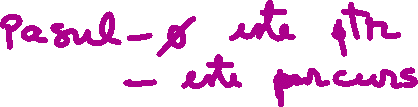 Pasul - ∅ este ptr
- este parcurs